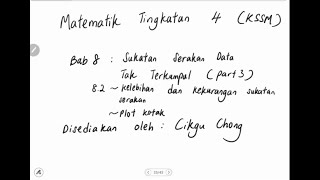 Matematik Tingkatan 4 (KSSM)
Bab 8 : Sukatan Serakan Data
Tak Terkumpal (part 3)
8.2 ~ Kelebihan dan kekurangan sukatan
serakan
~ Plot kotak
Disediakan oleh : Cikgu Chong